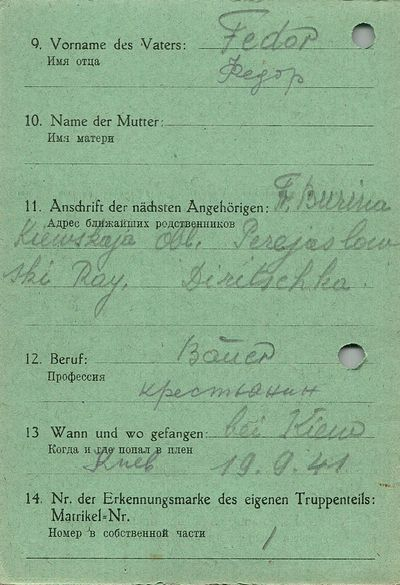 9. Vorname des Vaters: Fedor
Имя отца Федор
10. Name der Mutter:
Имя матери
11. Anschrift der nächsten Angehörigen: F. Burina
Адрес ближайших родственников
Kiewskaja Obl. Perejaslow
ski Ray. Diritschka
12. Beruf: Bauer
Профессия
крестьянин
13 Wann und wo gefangen: bei Kiew
Когда и где попал в плен
Киев 19.9.41
14. Nr. der Erkennungsmarke des eigenen Truppenteils:
Matrikel-Nr.
Номер в собственной части /